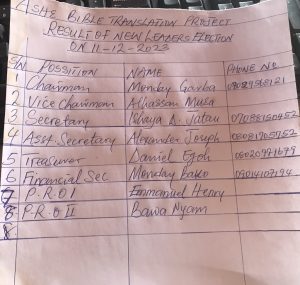 ASHE BIBLE TRANSLATION PROJECT
RESULT OF NEW LEADERS ELECTION
ON 11-12-2023
S/N POSSITION NAME PHONE NO
1 Chairman Monday Garba
2 Vice Chairman Alhassan Musa
3 Secretary Ishaya D. Jatau
4 Asst. Secretary Alexander Joseph
5 Treasurer Daniel
6 Financial Sec Monday
7 P.R.O I Emmanuel Henry
8 P.R.O II Bawa Nyam
8